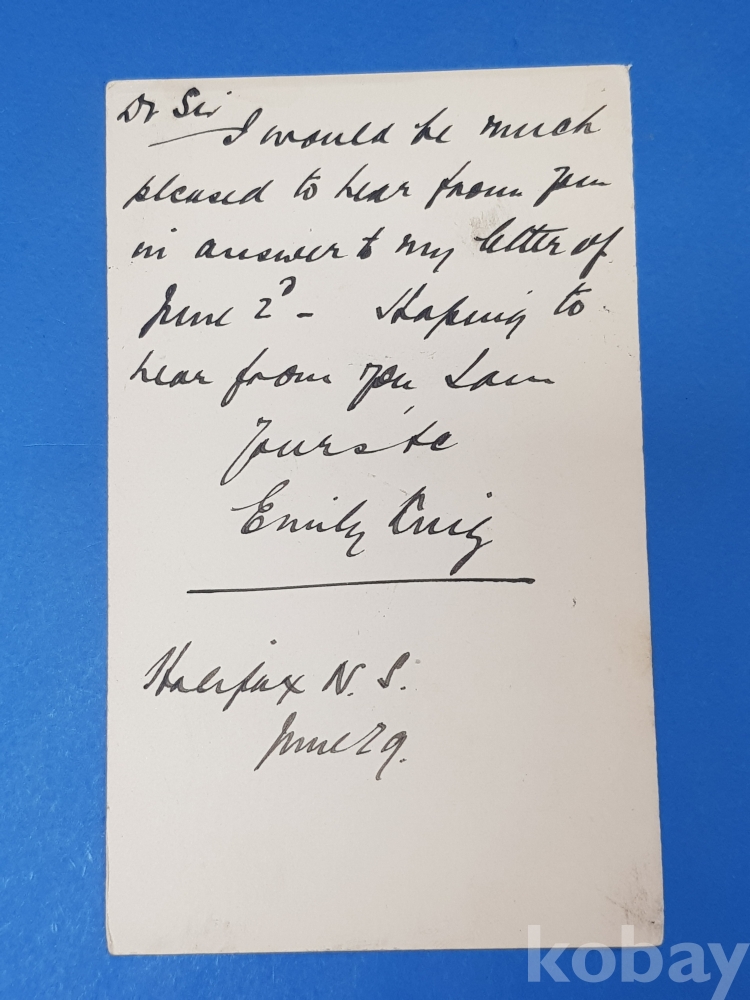 Dr Sir
I would be much
pleased to hear from you
in answer to my letter of
June 2d - Hoping to
hear from you I am
Yours &c
Emily
Halifax N. S.
June 29.
kobay